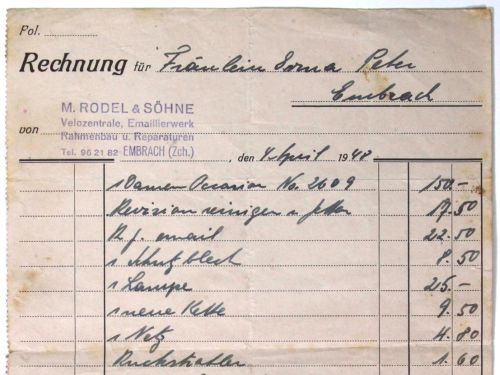 Fol.
Rechnung für Fräulein Erna Peter
Embrach
M. RODEL & SÖHNE
Velozentrale, Emaillierwerk
von
Rahmenbau u. Reparaturen
Tel. 96 21 82 EMBRACH (Zch.)
, den 4. April 1948
1 Damen Occasion No. 2609 150.-
Revision reinigen u. fetten 17.50
email 22.50
1 Schutzblech 8.50
1 Lampe 25.-
1 neue Kette 9.50
1 Netz 4.80
Rückstrahler 1.60